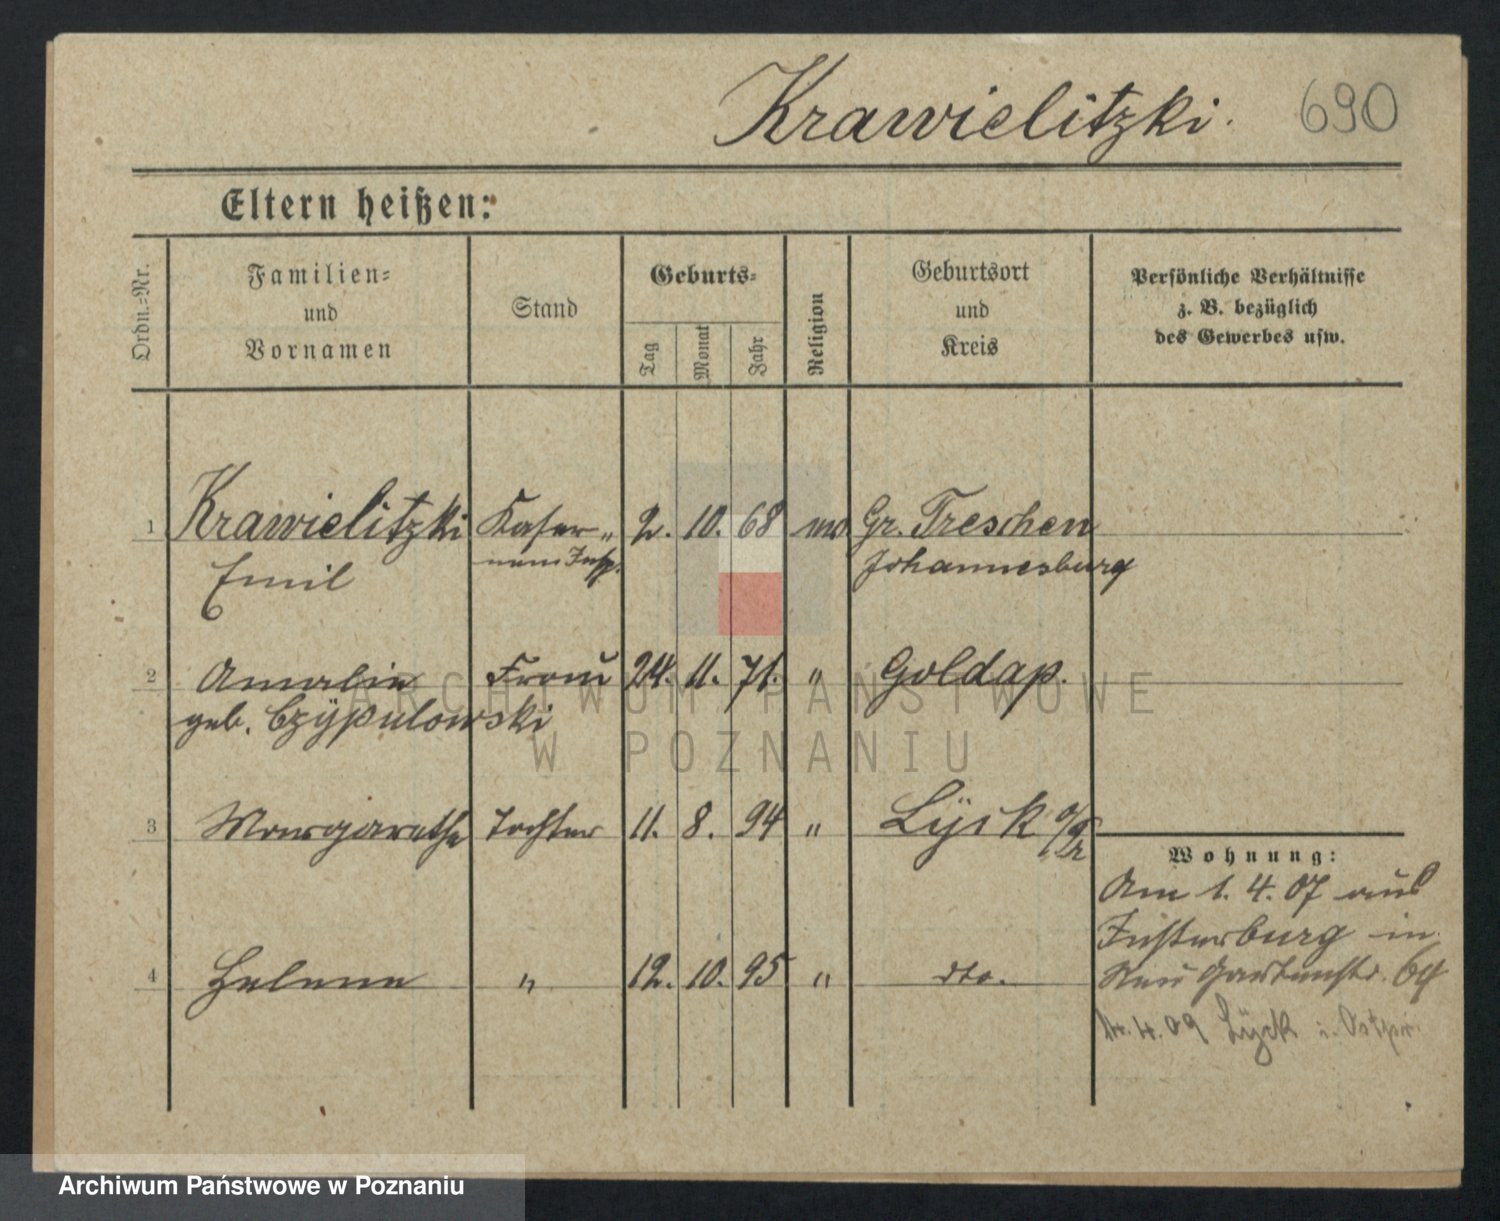 Krawielitzki. 690
Eltern heißen:
Ordn.=Nr.
Familien=
und
Vornamen
Stand
Geburts=
Tag
Monat
Jahr
Religion
Geburtsort
und
Kreis
Persönliche Verhältnisse
z. B. bezüglich
des Gewerbes usw.
1 Krawielitzki Kaser„ 2. 10. 68 Gr. Treschen
Emil nen Insp. Johannesburg
2 Amalie Frau 24. 11. 71. " Goldap.
geb. Czÿpulowski
3 Margarethe Tochter 11. 8. 94 " Lÿck
4 Helene " 12. 10. 95 " dto.
Wohnung:
Am 1. 4. 07 aus
Insterburg in
Neu Gartenstr.
4. 09 Lÿck i. Ostpr.
ARCHIWUM PAŃSTWOWE
W POZNANIU
Archiwum Państwowe w Poznaniu